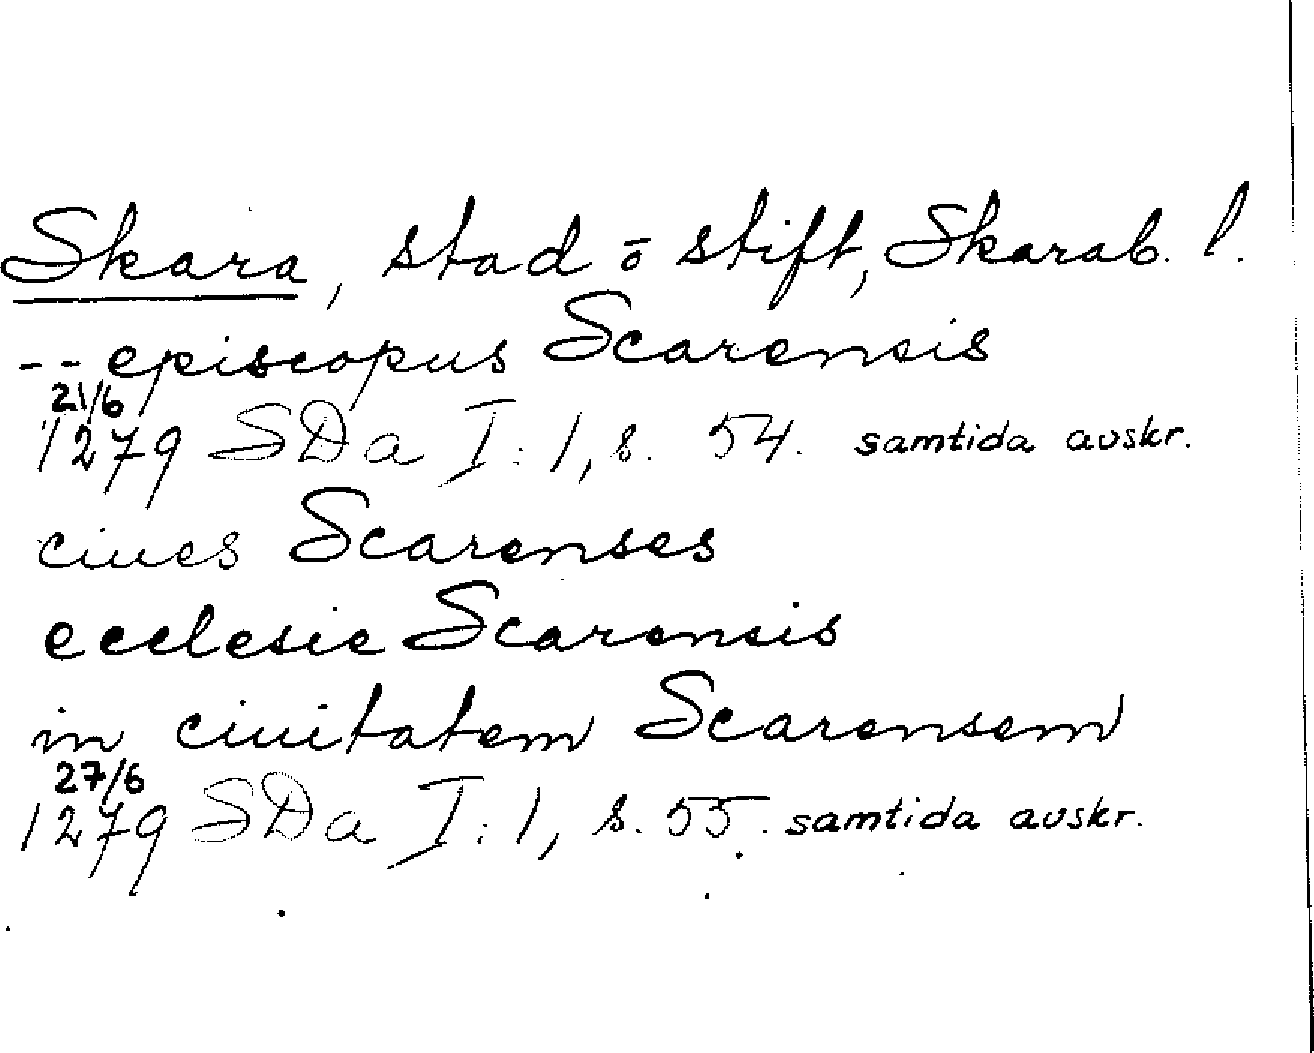 Skara, stad o stift, Skarab. l.
-- episcopus Scarensis
21/6
1279 SDa I:1, s. 54. samtida avskr.
ciues Scarenses
ecclesie Scarensis
in ciuitatem Scarensem
27/6
1279 SDa I:1, s. 55. samtida avskr.